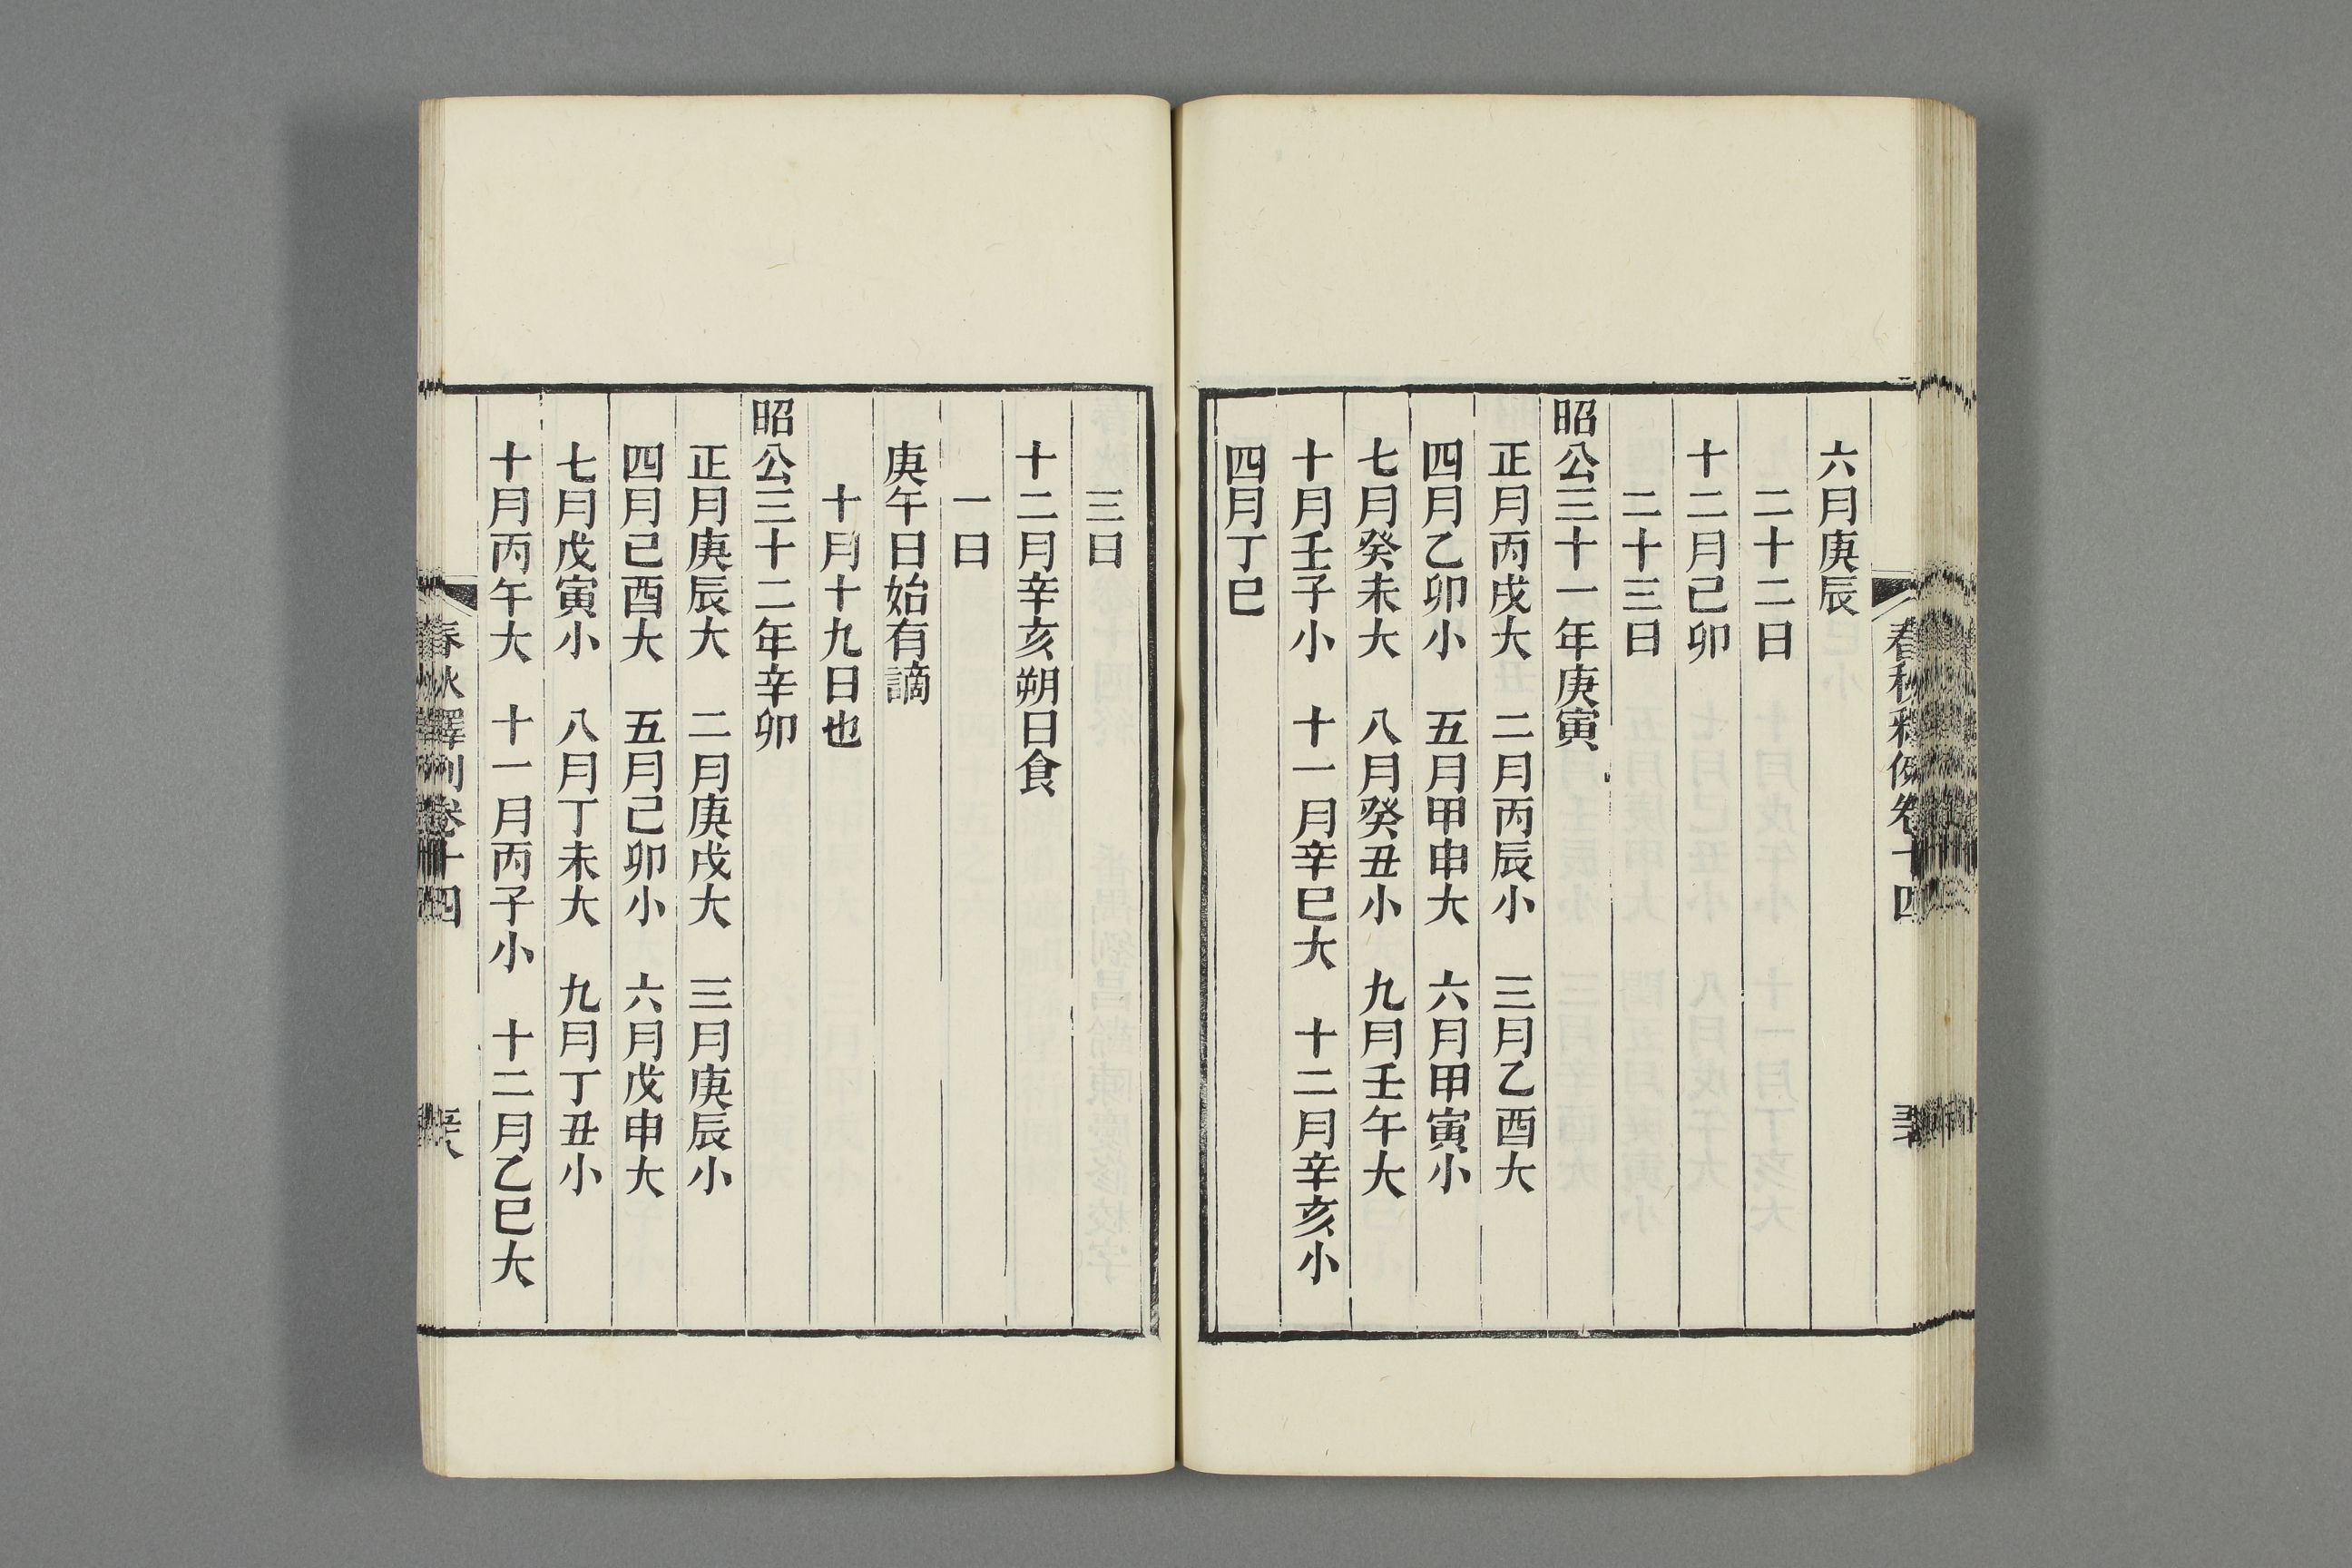 春秋釋例卷十四
六月庚辰
二十二日
十二月己卯
二十三日
昭公三十一年庚寅
正月丙戌大　二月丙辰小　三月乙酉大
四月乙卯小　五月甲申大　六月甲寅小
七月癸未大　八月癸丑小　九月壬午大
十月壬子小　十一月辛巳大　十二月辛亥小
四月丁巳
三日
十二月辛亥朔日食
一日
庚午日始有謫
十月十九日也
昭公三十二年辛卯
正月庚辰大　二月庚戌大　三月庚辰小
四月己酉大　五月己卯小　六月戊申大
七月戊寅小　八月丁未大　九月丁丑小
十月丙午大　十一月丙子小　十二月乙巳大
春秋釋例卷十四